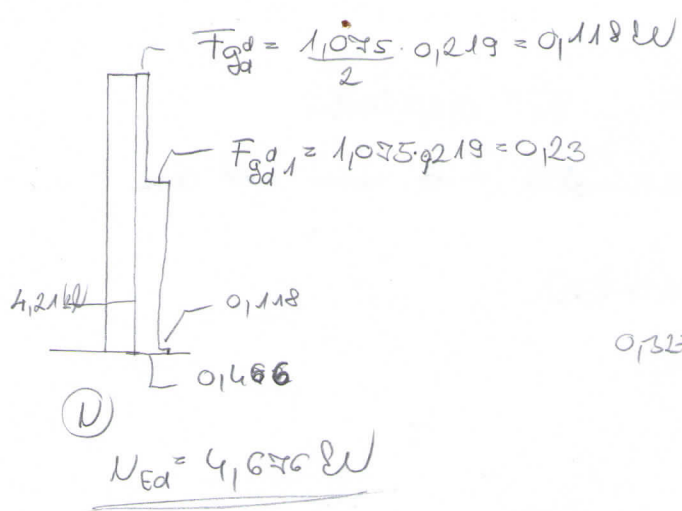 F_gd^d = 1,075/2 · 0,219 = 0,118 kN
F_gd 1^d = 1,075·0,219 = 0,23
4,21 kN
0,118
0,466
0,32
N
N_Ed = 4,676 kN